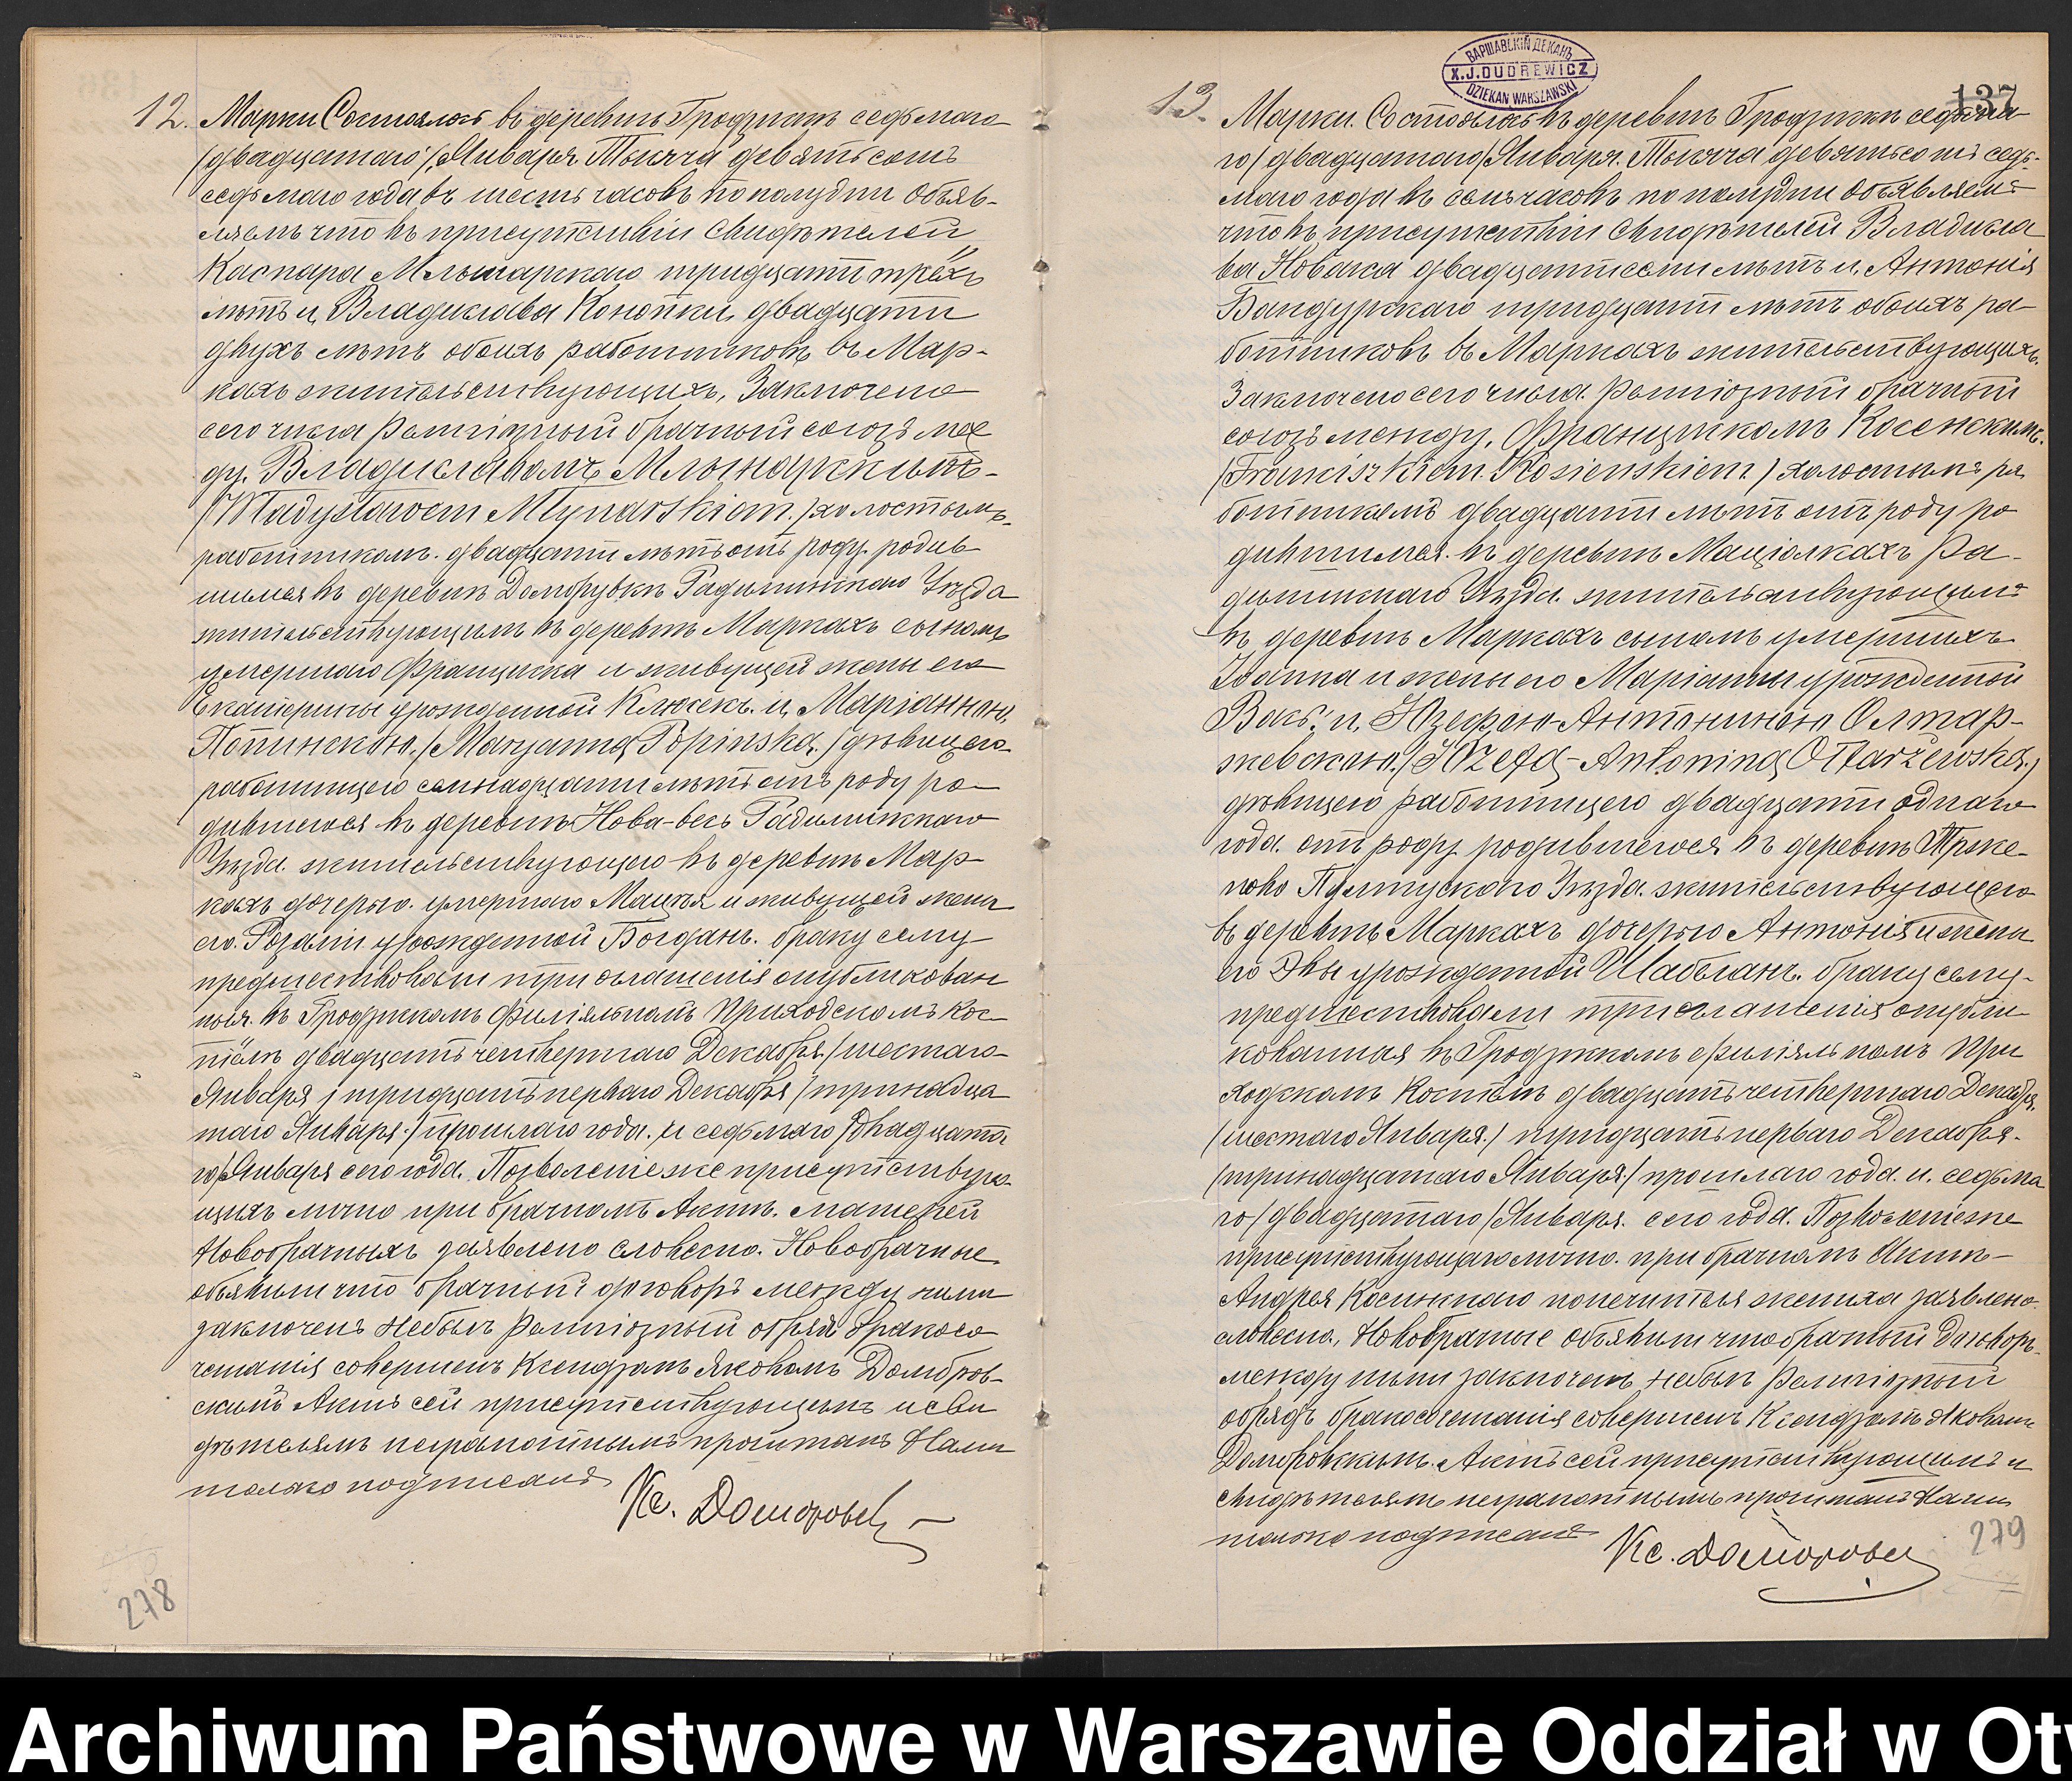 12. Марки Состоялось въ деревнѣ Гродзискѣ седьмаго
/двадцатаго/ Января Тысяча девятьсотъ
седьмаго года въ шесть часовъ пополудни Объяв-
ляемъ что въ присутствіи свидѣтелей
Каспара Млынарскаго тридцати трёхъ
лѣтъ и, Владислава Конопки, двадцати
двухъ лѣтъ обоихъ работниковъ въ Мар-
кахъ жительствующихъ, Заключено
сего числа Религіозный брачный союзъ меж
ду, Владиславомъ Млынарскимъ-
/Władysławem Młynarskiem./ холостымъ,
работникомъ. двадцати лѣтъ отъ роду. родив
шимся въ деревнѣ Домбрувкѣ Радиминскаго Уѣзда
жительствующимъ въ деревнѣ Маркахъ сыномъ
умершаго Францишка и живущей жены его
Екатерины урожденной Клюсекъ. и, Маріанною,
Попинскою./Maryanną Popinską./ дѣвицею
работницею семнадцати лѣтъ отъ роду ро-
дившеюся въ деревнѣ Нова-весь Радиминскаго
Уѣзда. жительствующею въ деревнѣ Мар-
кахъ дочерью. умершаго Мацѣя и живущей жены
его. Розаліи урожденной Богданъ. браку сему-
предшествовали три оглашенія опубликован
ныя. въ Гродзискомъ Филіяльномъ Приходскомъ Кос-
тёлѣ двадцать четвертаго Декабря /шестаго-
Января / тридцать перваго Декабря /тринадца
таго Января./ прошлаго года. и седьмаго /двадцата
го/ Января сего года. Позволеніе же присутствую-
щихъ лично при брачномъ Актѣ. матерей
Новобрачныхъ заявлено словесно. Новобрачные
объявили что брачный договоръ между ними
заключенъ небылъ Религіозный обрядъ бракосо
четанія совершенъ Ксендзомъ Яковомъ Домбров-
скимъ Актъ сей присутствующимъ и сви
дѣтелямъ неграмотнымъ прочитанъ Нами
только подписанъ
Кс. Домбровск
278
ВАРШАВСКІЙ ДЕКАНЪ
X.J.DUDREWICZ
DZIEKAN WARSZAWSKI
137
13. Марки. Состоялось въ деревнѣ Гродзискѣ седьма
го/двадцатаго/Января. Тысяча девятьсотъ седь-
маго года въ семь часовъ по полудни Объявляемъ
что въ присутствіи свидѣтелей Владисла
ва Новака двадцати семи лѣтъ и, Антонія
Бандурскаго тридцати лѣтъ обоихъ ра-
ботниковъ въ Маркахъ жительствующихъ.
Заключено сего числа. Религіозный брачный
союзъ между, Францишкомъ Косенскимъ.
/Franciszkiem Kosienskiem./ холостымъ ра
ботникомъ двадцати лѣтъ отъ роду ро
дившимся. въ деревнѣ Маціолкахъ Ра-
диминскаго Уѣзда. жительствующимъ
въ деревнѣ Маркахъ сыномъ умершихъ
Іоанна и жены его Маріанны урожденной
Вакъ, и, Юзефою-Антониною Олтар-
жевскою./Józefą-Antoniną Ołtarżewską./
дѣвицею работницею двадцати одного
года. отъ роду родившеюся въ деревнѣ
Пултускаго Уѣзда. жительствующею
въ деревнѣ Маркахъ дочерью Антонія и жены
его Эвы урожденной браку сему-
предшествовали три оглашенія опубли-
кованныя въ Гродзискомъ Филіяльномъ При
ходскомъ Костёлѣ двадцать четвертаго Декабря,
/шестаго Января./ тридцать перваго Декабря-
/тринадцатаго Января/ прошлаго года. и. седьма
го/двадцатаго/Января. сего года. Позволеніе же
присутствующаго лично. при брачномъ Актѣ-
Андрея Косинскаго попечителя жениха заявлено
словесно, Новобрачные объявили что брачный Договоръ
между ними заключенъ небылъ Религіозный
обрядъ бракосочетанія совершенъ Ксендзомъ Яковомъ
Домбровскимъ. Актъ сей присутствующимъ и
свидѣтелямъ неграмотнымъ прочитанъ Нами
только подписанъ
Кс. Домбровск
279
Archiwum Państwowe w Warszawie Oddział w Otw